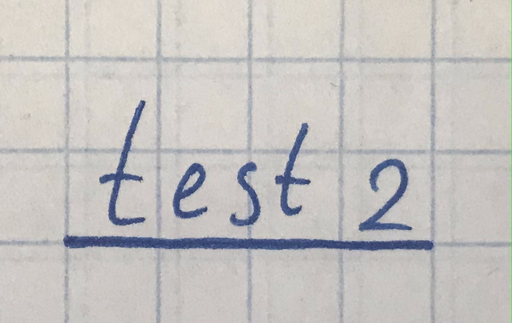 test 2